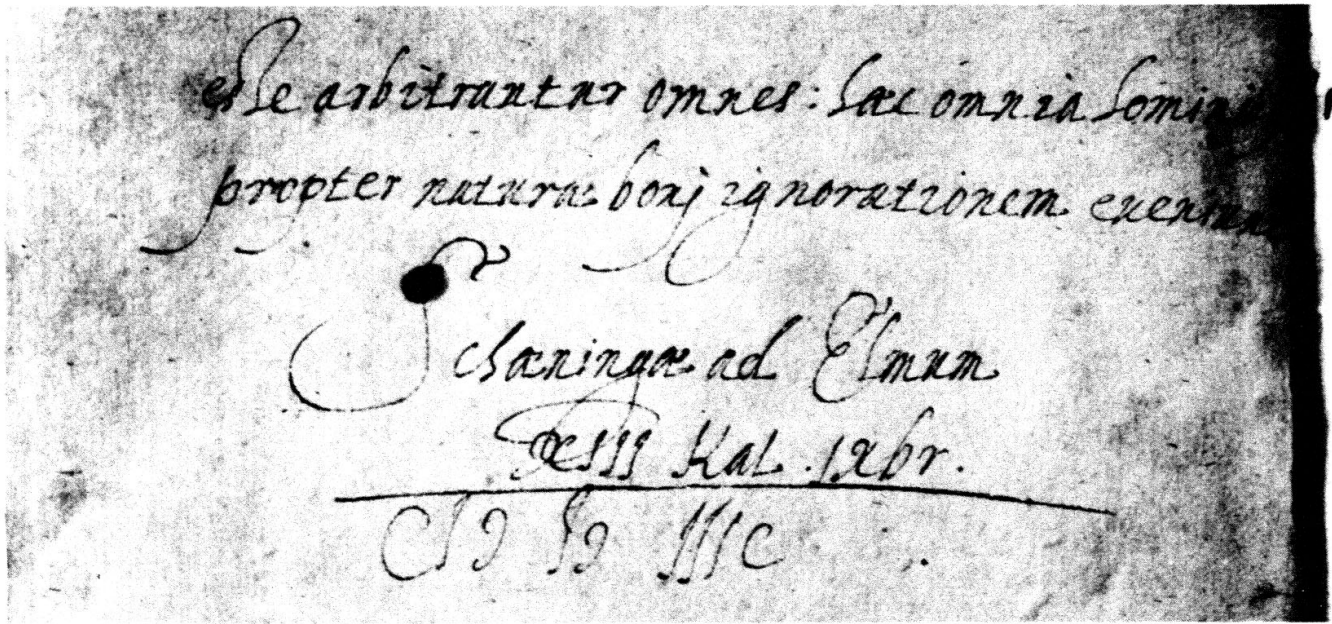 esse arbitrantur omnes: haec omnia homini
propter naturae boni ignorationem eveniunt
Schaeningae ad Elmum
XIII Kal. IXbr.
CIƆ IƆ IIIC